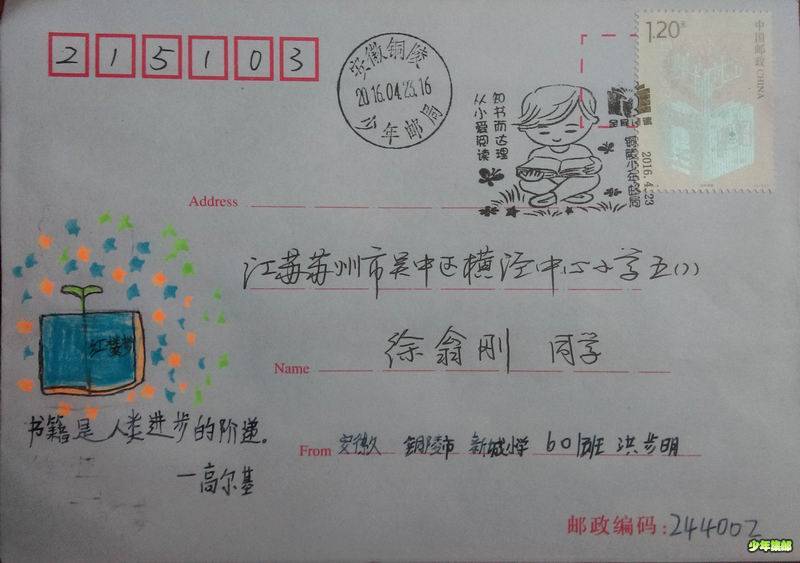 215103
安徽铜陵
2016.04.23.16
少年邮局
知书而达理
从小爱阅读
全民阅读
铜陵少年邮局
2016.4.23
1.20元
中国邮政 CHINA
Address
江苏苏州市吴中区横泾中心小学五(1)
Name 徐翁刚 同学
红楼梦
书籍是人类进步的阶递。
—高尔基
From 安徽 铜陵市 新城小学 601班 洪步明
邮政编码:244002
少年集邮